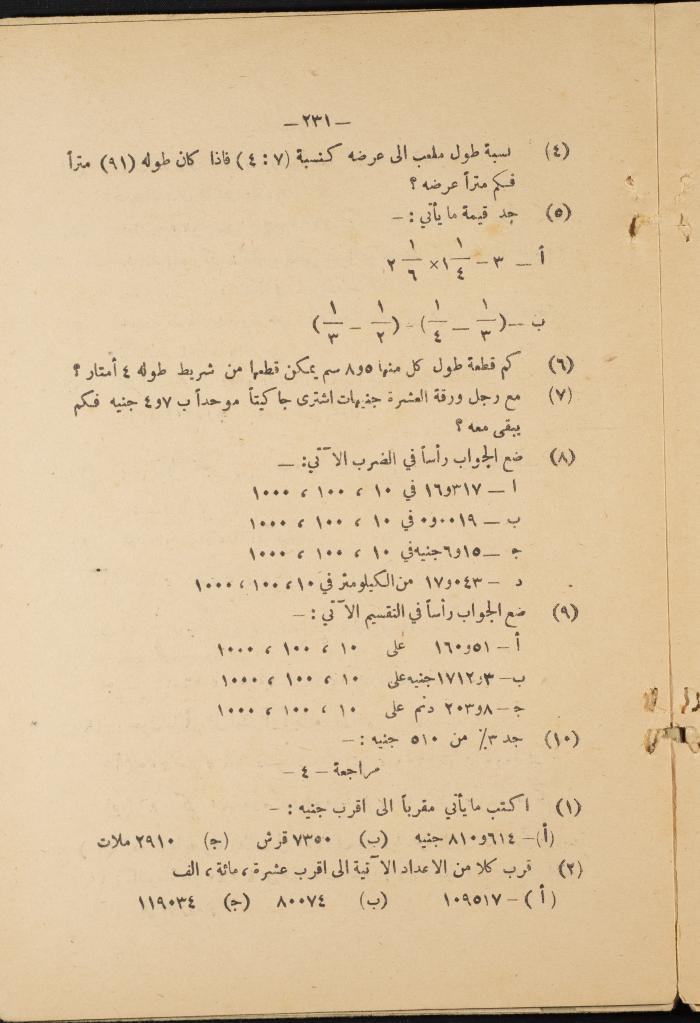 —٢٣١—
(٤) نسبة طول ملعب الى عرضه كنسبة (٧ : ٤) فاذا كان طوله (٩١) متراً
فكم متراً عرضه ؟
(٥) جد قيمة ما يأتي : —
أ — ٣ − ١ ١/٤ × ٢ ١/٦
ب — (١/٣ − ١/٤) ÷ (١/٢ − ١/٣)
(٦) كم قطعة طول كل منها ٥و٨ سم يمكن قطعها من شريط طوله ٤ أمتار ؟
(٧) مع رجل ورقة العشرة جنيهات اشترى جاكيتاً موحداً ب ٧و٤ جنيه فكم
يبقى معه ؟
(٨) ضع الجواب رأساً في الضرب الآتي: —
ا — ٣١٧و١٦ في ١٠ ، ١٠٠ ، ١٠٠٠
ب — ٠٠١٩و٠ في ١٠ ، ١٠٠ ، ١٠٠٠
ج — ١٥و٦ جنيه في ١٠ ، ١٠٠ ، ١٠٠٠
د — ٠٤٣و١٧ من الكيلومتر في ١٠ ، ١٠٠ ، ١٠٠٠
(٩) ضع الجواب رأساً في التقسيم الآتي : —
أ — ٥١و١٦٠ على ١٠ ، ١٠٠ ، ١٠٠٠
ب — ٣و١٧١٢ جنيه على ١٠ ، ١٠٠ ، ١٠٠٠
ج — ٨و٢٠٣ دنم على ١٠ ، ١٠٠ ، ١٠٠٠
(١٠) جد ٣٪ من ٥١٠ جنيه : —
مراجعة — ٤ —
(١) اكتب ما يأتي مقرباً الى اقرب جنيه : —
(أ) — ٦١٤و٨١٠ جنيه (ب) ٧٣٥٠ قرش (ج) ٢٩١٠ ملات
(٢) قرب كلا من الاعداد الآتية الى اقرب عشرة ، مائة ، الف
(أ) — ١٠٩٥١٧ (ب) ٨٠٠٧٤ (ج) ١١٩٠٣٤